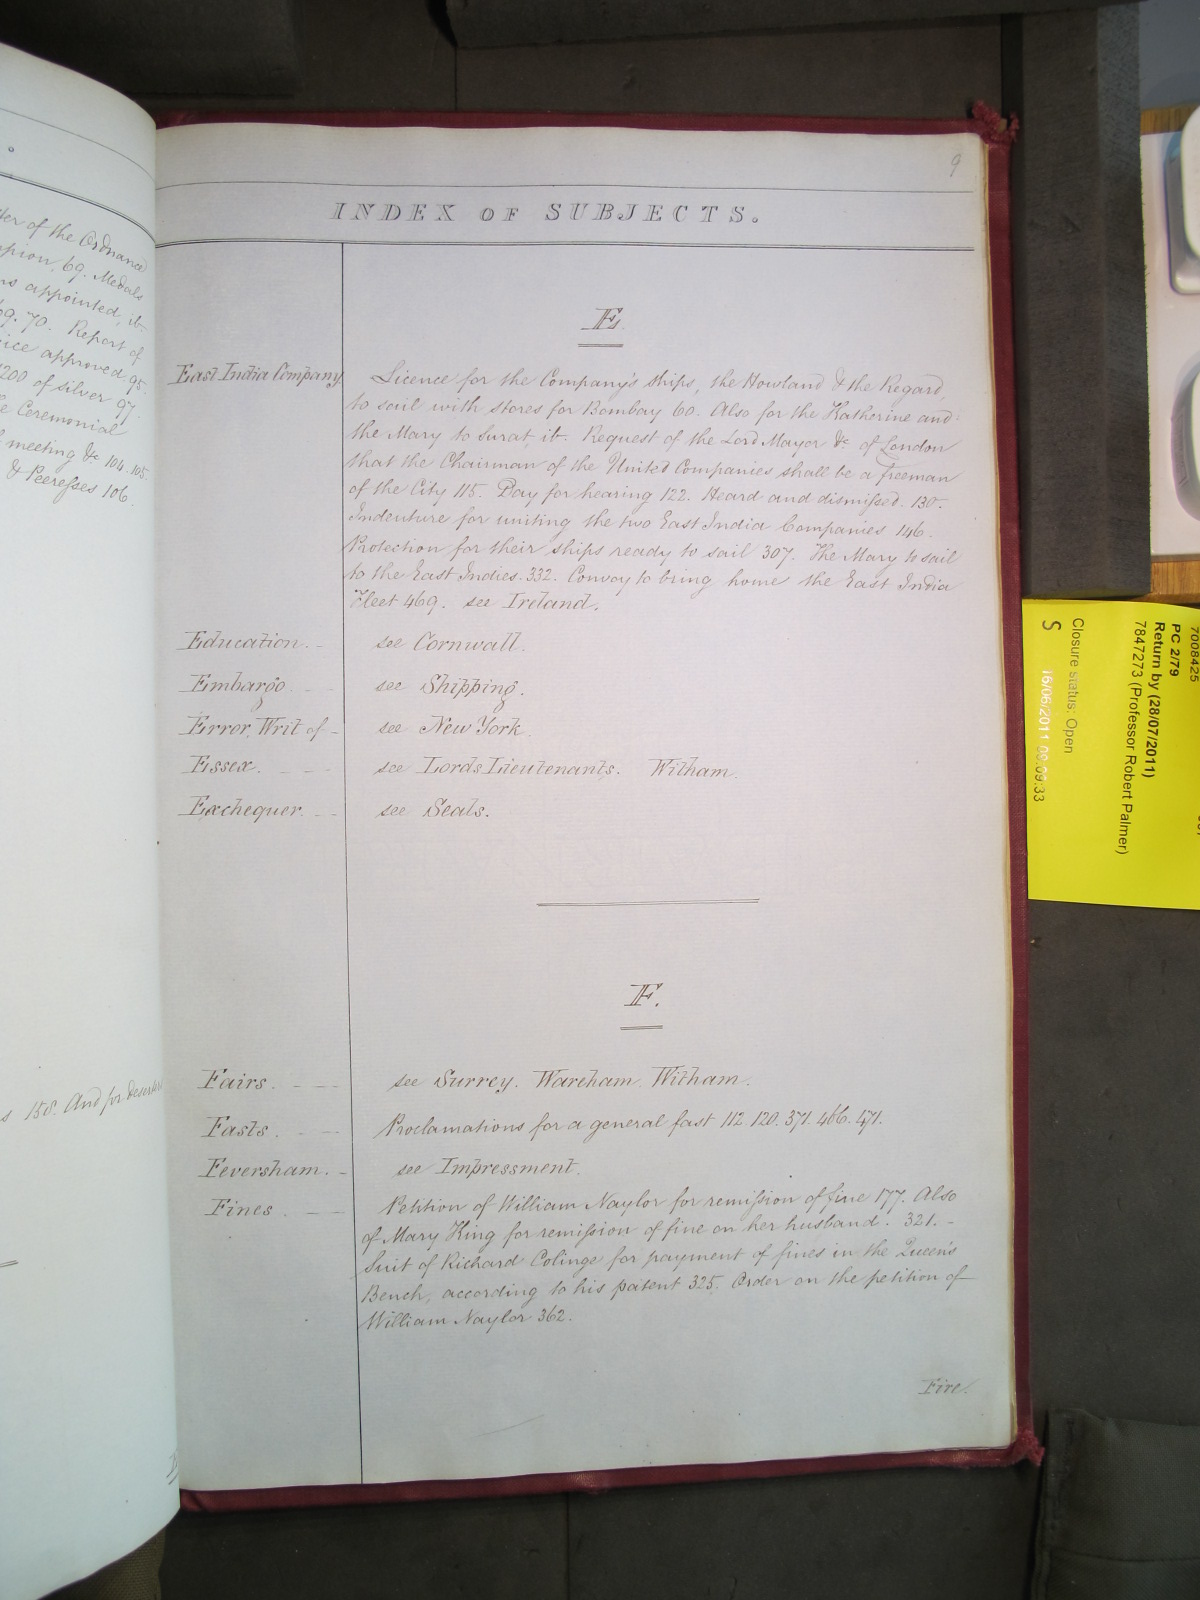 ter of the Ordnance
69. Medals
appointed, ib.
69. 70. Report of
approved 95.
200 of silver 97.
Ceremonial
meeting &c 104. 105.
& Peeresses 106.
158. And for
9
INDEX OF SUBJECTS.
E.
East India Company
Licence for the Company's ships, the Howland & the Regard,
to sail with stores for Bombay 60. Also for the Katherine and
the Mary to Surat, ib. Request of the Lord Mayor &c of London
that the Chairman of the United Companies shall be a freeman
of the City 115. Day for hearing 122. Heard and dismissed. 130.
Indenture for uniting the two East India Companies 146.
Protection for their ships ready to sail 307. The Mary to sail
to the East Indies. 332. Convoy to bring home the East India
Fleet 469. see Ireland.
Education. - see Cornwall.
Embargo - - see Shipping.
Error, Writ of - see New York.
Essex. - - - see Lords Lieutenants. Witham.
Exchequer. - - see Seals.
F.
Fairs. - - - see Surrey. Wareham. Witham.
Fasts. - - - Proclamations for a general fast 112. 120. 371. 466. 471.
Feversham. - see Impressment.
Fines - - - Petition of William Naylor for remission of fine 177. Also
of Mary King for remission of fine on her husband. 321. -
Suit of Richard Colinge for payment of fines in the Queen's
Bench, according to his patent 325. Order on the petition of
William Naylor 362.
Fire.
7008425
PC 2/79
Return by (28/07/2011)
7847273 (Professor Robert Palmer)
Closure status: Open
S
16/06/2011 09:09:33